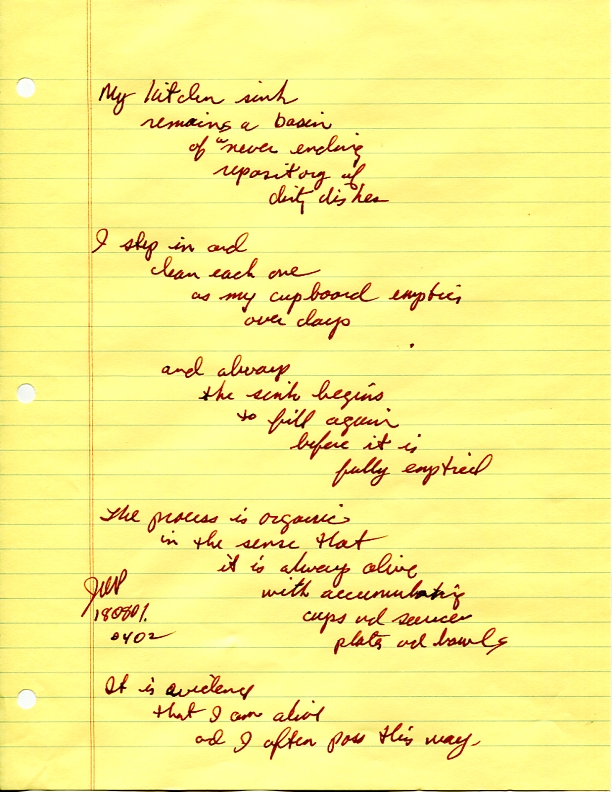 My kitchen sink
remains a basin
of a never ending
repository of
dirty dishes
I step in and
clean each one
as my cupboard empties
over days
and always
the sink begins
to fill again
before it is
fully emptied
The process is organic
in the sense that
it is always alive
with accumulating
cups and saucer
plates and bowls
180801.
0402
It is evidence
that I am alive
and I often pass this way.